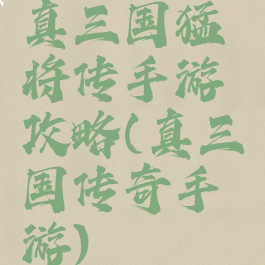 真三国猛
将传手游
攻略(真三
国传奇手
游)